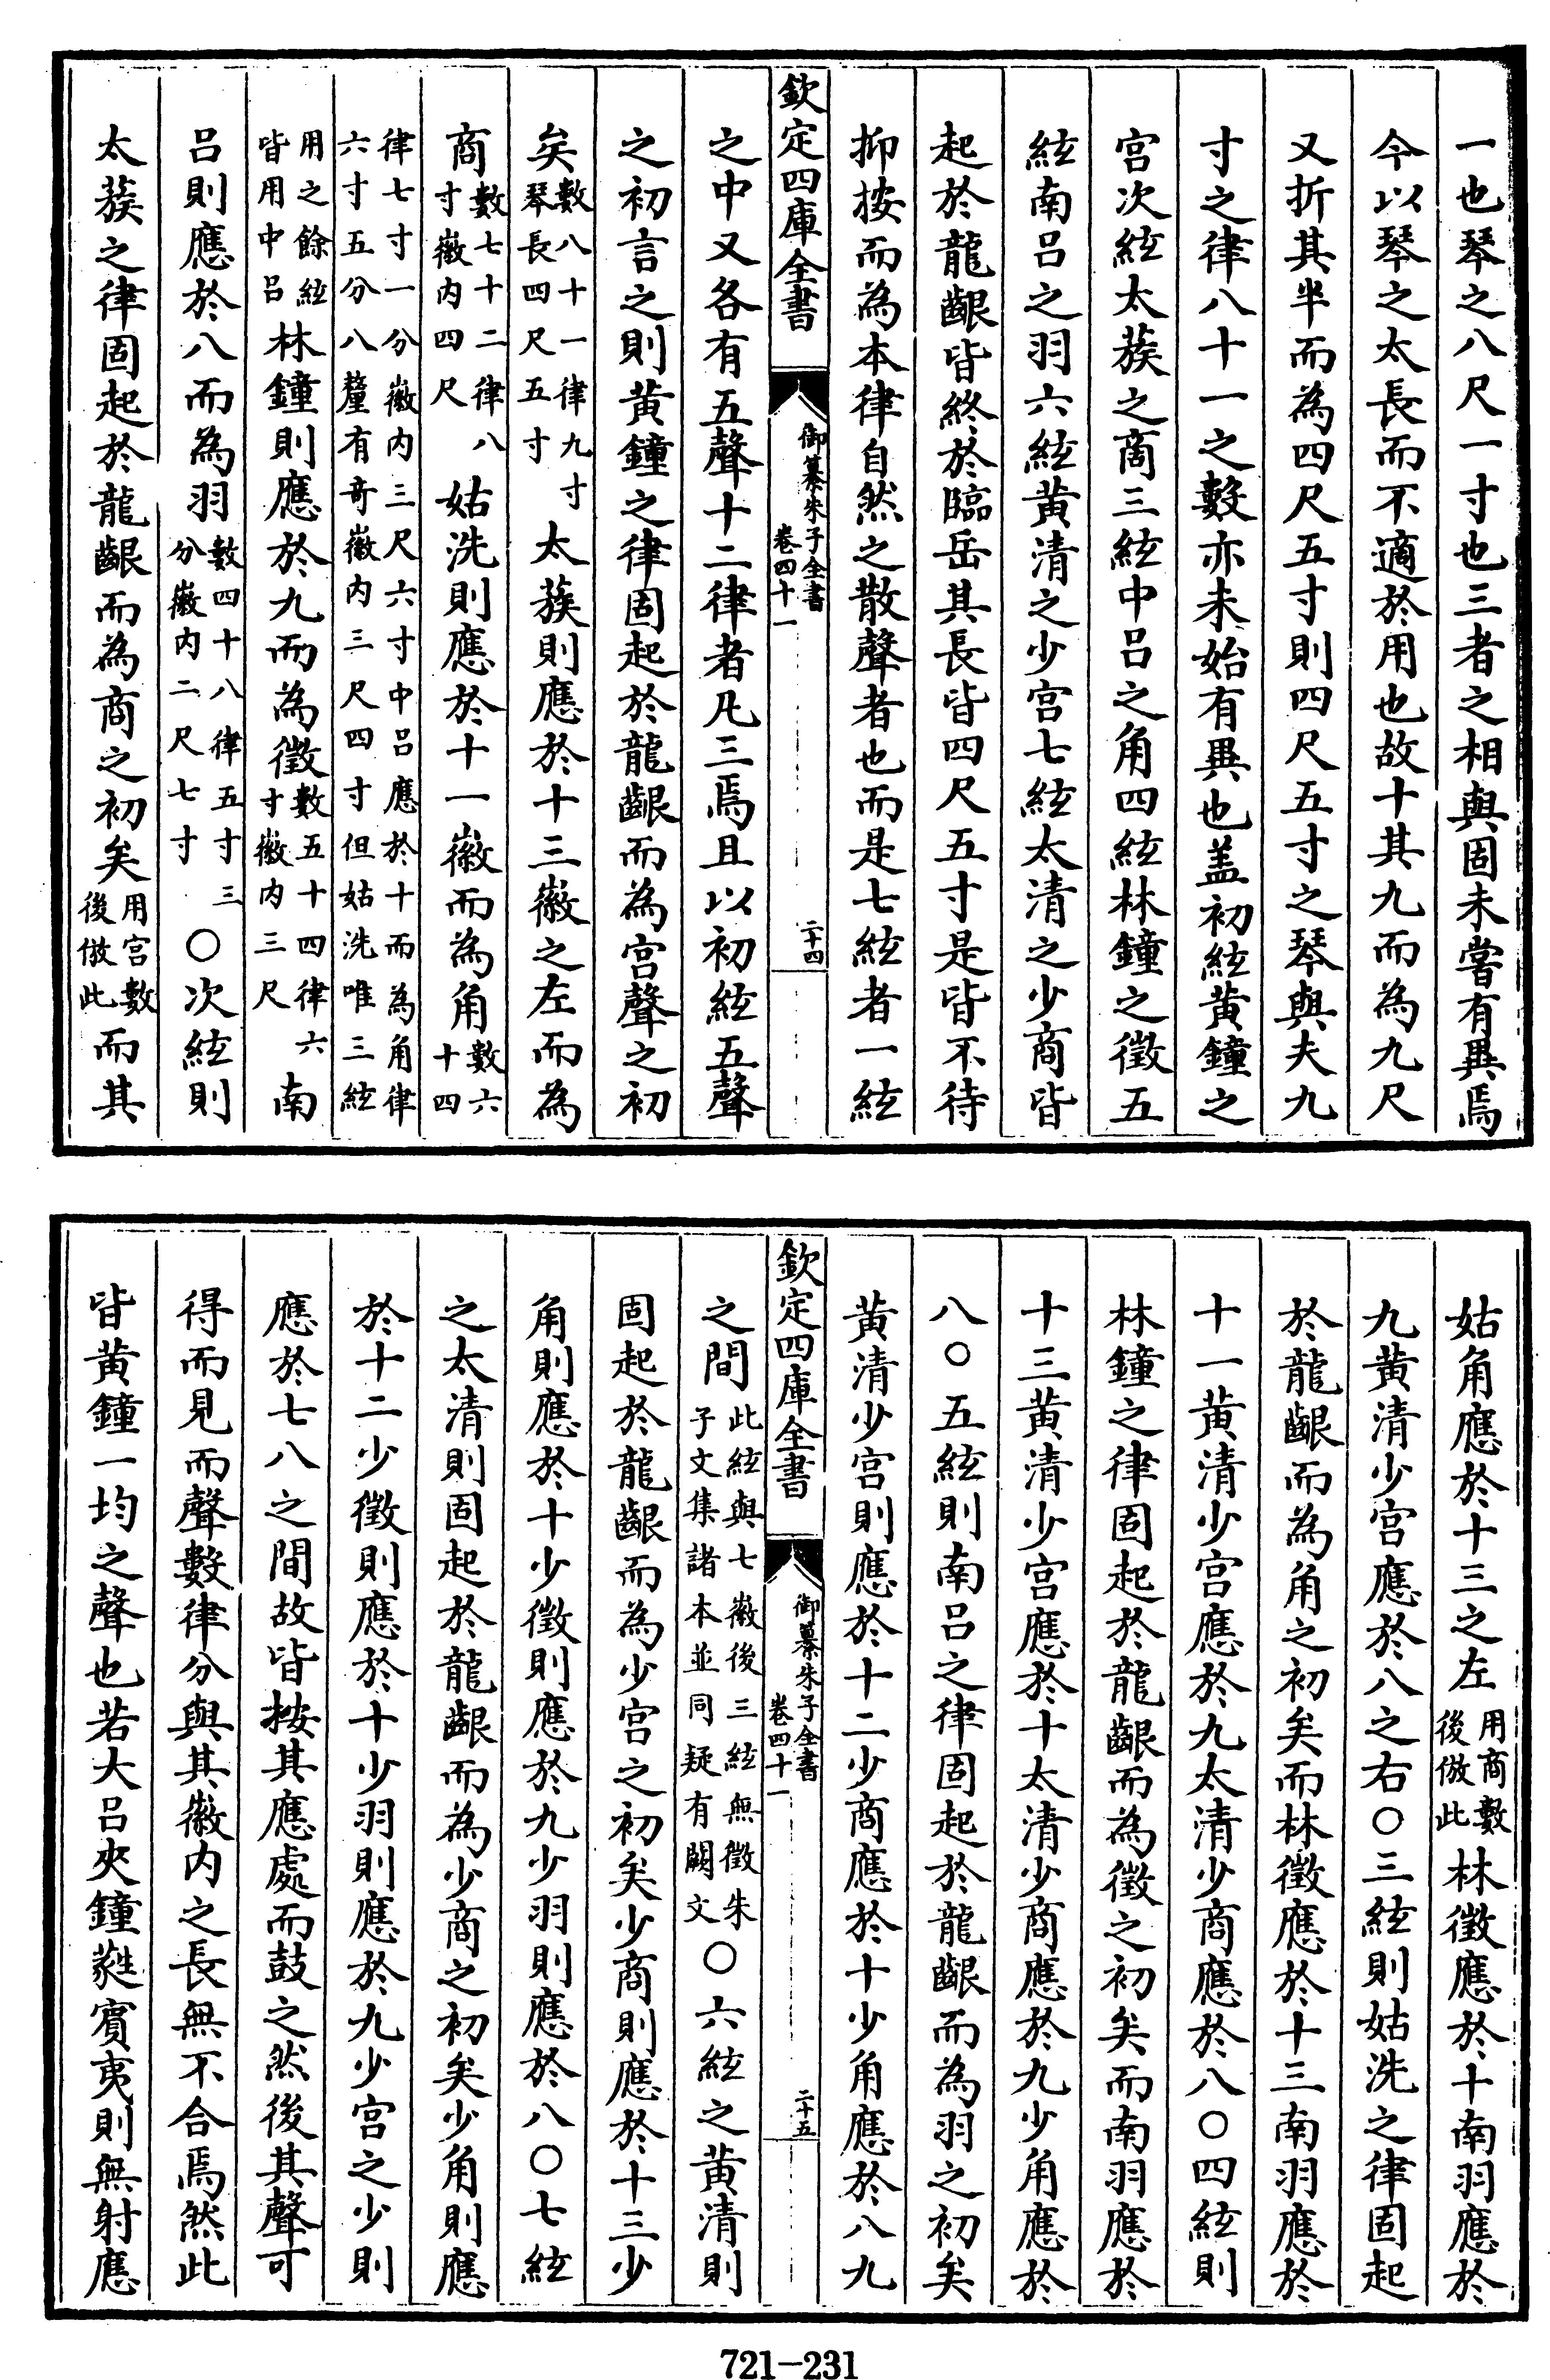 一也琴之八尺一寸也三者之相與固未嘗有異焉
今以琴之太長而不適於用也故十其九而為九尺
又折其半而為四尺五寸則四尺五寸之琴與夫九
寸之律八十一之數亦未始有異也盖初絃黃鐘之
宮次絃太蔟之商三絃中呂之角四絃林鐘之徵五
絃南呂之羽六絃黃清之少宮七絃太清之少商皆
起於龍齦皆終於臨岳其長皆四尺五寸是皆不待
抑按而為本律自然之散聲者也而是七絃者一絃
欽定四庫全書
御纂朱子全書
卷四十一
二十四
之中又各有五聲十二律者凡三焉且以初絃五聲
之初言之則黃鐘之律固起於龍齦而為宮聲之初
矣數八十一律九寸琴長四尺五寸太蔟則應於十三徽之左而為
商數七十二律八寸徽内四尺姑洗則應於十一徽而為角數六十四
律七寸一分徽内三尺六寸中呂應於十而為角律六寸五分八釐有奇徽内三尺四寸但姑洗唯三絃
用之餘絃皆用中呂林鐘則應於九而為徵數五十四律六寸徽内三尺南
呂則應於八而為羽數四十八律五寸三分徽内二尺七寸○次絃則
太蔟之律固起於龍齦而為商之初矣用宮數後倣此而其
姑角應於十三之左用商數後倣此林徵應於十南羽應於
九黃清少宮應於八之右○三絃則姑洗之律固起
於龍齦而為角之初矣而林徵應於十三南羽應於
十一黃清少宮應於九太清少商應於八○四絃則
林鐘之律固起於龍齦而為徵之初矣而南羽應於
十三黃清少宮應於十太清少商應於九少角應於
八○五絃則南呂之律固起於龍齦而為羽之初矣
黃清少宮則應於十二少商應於十少角應於八九
欽定四庫全書
御纂朱子全書
卷四十一
二十五
之間此絃與七徽後三絃無徵朱子文集諸本並同疑有闕文○六絃之黃清則
固起於龍齦而為少宮之初矣少商則應於十三少
角則應於十少徵則應於九少羽則應於八○七絃
之太清則固起於龍齦而為少商之初矣少角則應
於十二少徵則應於十少羽則應於九少宮之少則
應於七八之間故皆按其應處而鼓之然後其聲可
得而見而聲數律分與其徽内之長無不合焉然此
皆黃鐘一均之聲也若大呂夾鐘蕤賓夷則無射應
721—231